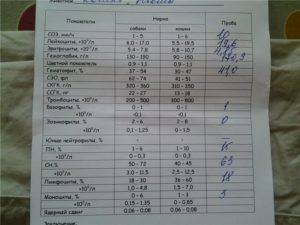 Показатели Норма Проба
собаки кошки
СОЭ, мм/ч 1 - 5 1 - 6 10
Лейкоциты, ×10⁹/л 6,0 - 17,0 5,5 - 19,5 19,6
Эритроциты, ×10¹²/л 5,4 - 7,8 5,8 - 10,7
Гемоглобин, г/л 130 - 190 90 - 150
Цветной показатель 0,9 - 1,1 0,9 - 1,1
Гематокрит, % 37 - 54 30 - 47 41,0
СЭО, фл
СКГК, г/л
СГК, пг 22 - 27 13 - 18
Тромбоциты, ×10⁹/л 200 - 500 300 - 800
Базофилы, % 0 - 1 0 - 1 1
×10⁹/л -0,1 -0,1
Эозинофилы, % 2 - 6 2 - 8 0
×10⁹/л 0,1 - 1,25 0 - 1,5
Юные нейтрофилы, %
ПН, % 1 - 6 1 - 10 15
×10⁹/л 0 - 0,3 0 - 0,3
СН, % 50 - 72 40 - 45 63
×10⁹/л 3,0 - 11,5 2,5 - 12,5
Лимфоциты, % 18 - 30 36 - 60 18
×10⁹/л 1,0 - 4,8 1,5 - 7,0
Моноциты, % 1 - 6 0 - 5 3
×10⁹/л 0,15 - 1,35 0 - 0,85
Ядерный сдвиг 0,06 - 0,08 0,06 - 0,08